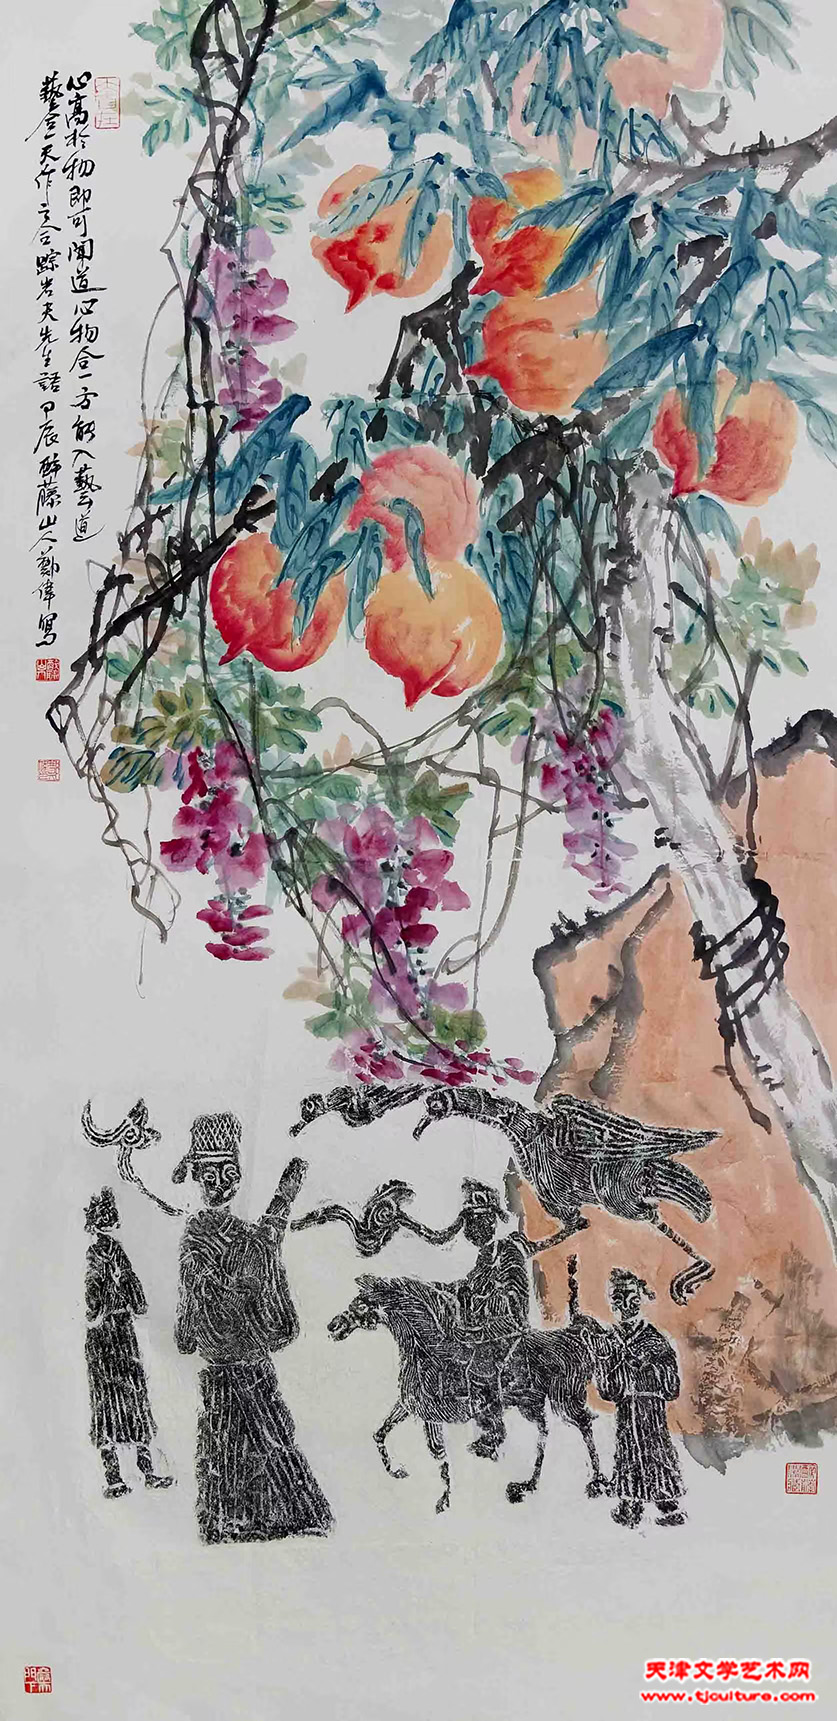 心高於物即可闻道心物合一方能入藝道
藝合一天作之合踪岩夫先生語甲辰醉藤山人鄭偉寫
天津文学艺术网
www.tjculture.com